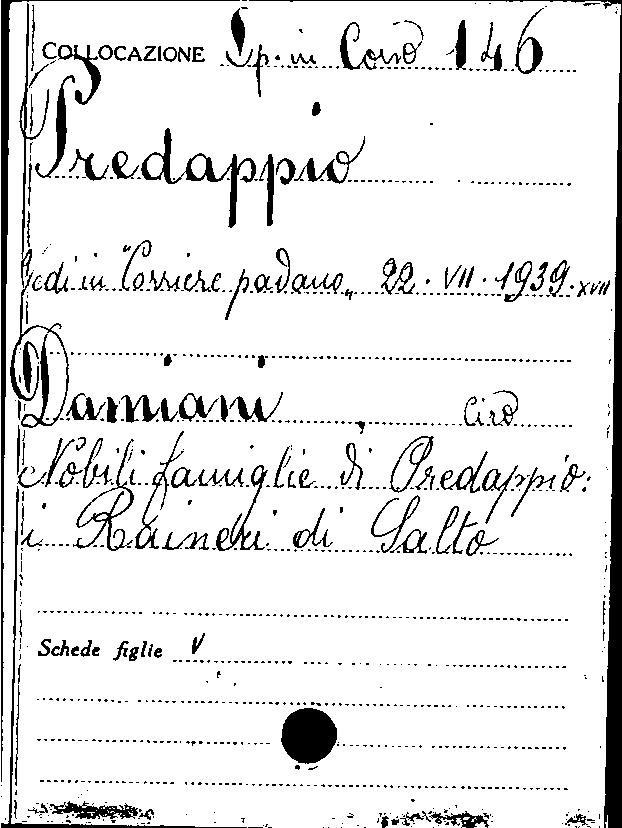 COLLOCAZIONE Sp. in Corso 146
Predappio
Vedi in "Corriere padano„ 22. VII. 1939. XVII
Damiani, Ciro
Nobili famiglie di Predappio:
i Raineri di Salto
Schede figlie V